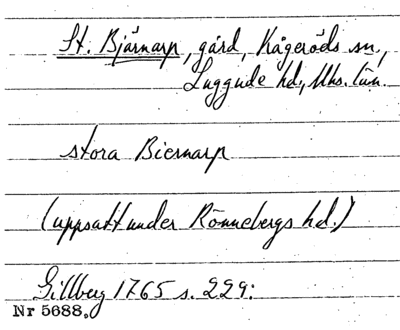 St. Bjärnarp, gård, Kågeröds sn,
Luggude hd, Mhs. län.
stora Biernarp
(uppsatt under Rönnebergs hd.)
Gillberg 1765 s. 229:
Nr 5688.